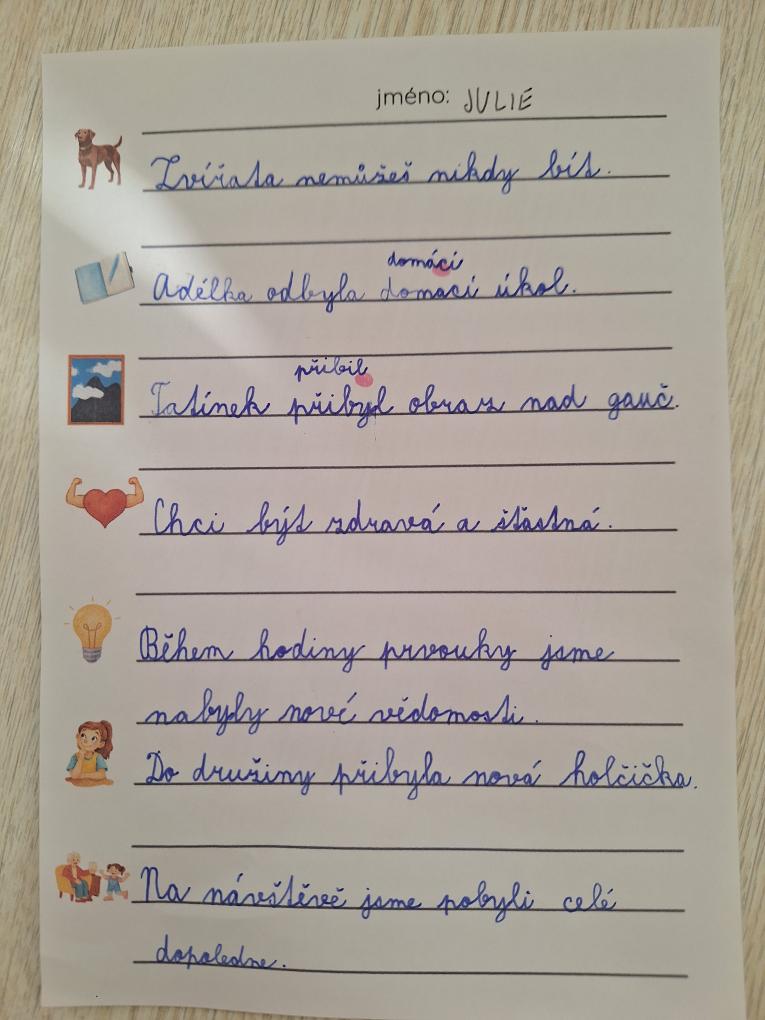 jméno: JULIE
Zvířata nemůžeš nikdy bít.
domácí
Adélka odbyla domací úkol.
přibil
Tatínek přibyl obraz nad gauč.
Chci být zdravá a šťastná.
Během hodiny prvouky jsme
nabyly nové vědomosti.
Do družiny přibyla nová holčička.
Na návštěvě jsme pobyli celé
dopoledne.